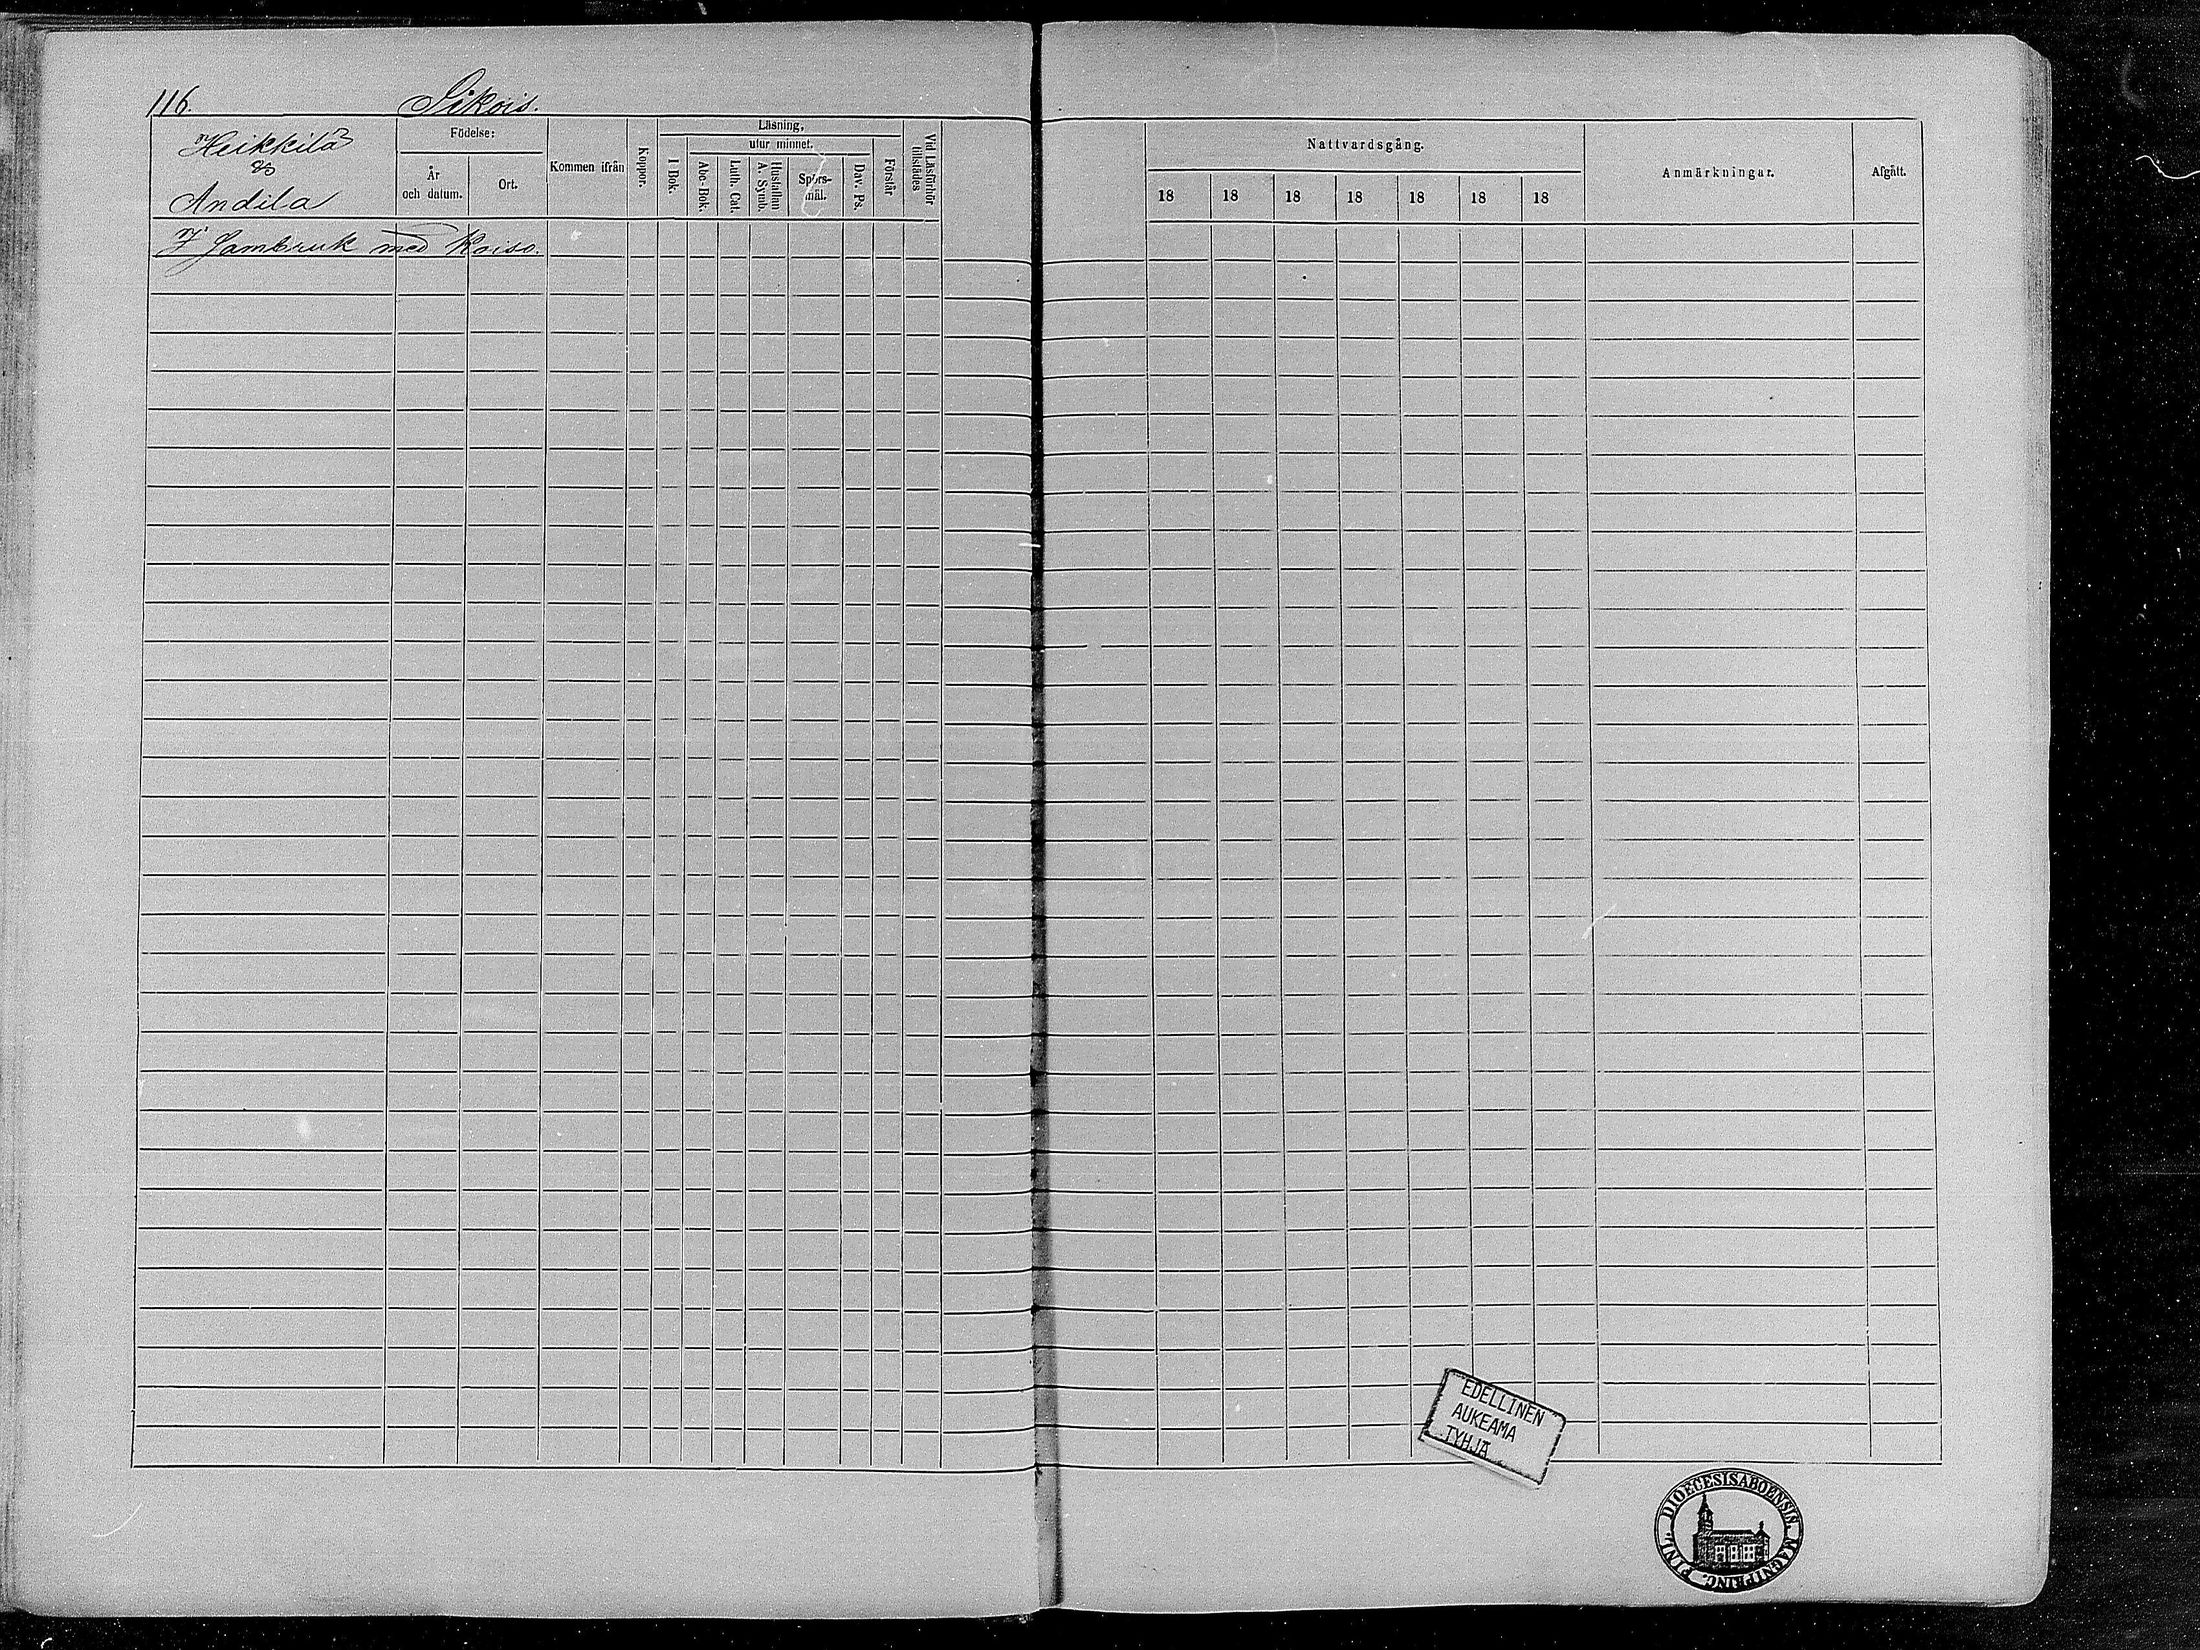 116.
Sikois.
Heikkilä
&
Andila
Födelse:
År
och datum.
Ort.
Kommen ifrån
Koppor.
Läsning,
utur minnet.
I Bok.
Abc-Bok.
Luth. Cat.
Hustaflan
A. Symb.
Spörs-
mål.
Dav. Ps.
Förstår
Vid Läsförhör
tillstädes
Nattvardsgång.
18 18 18 18 18 18 18
Anmärkningar.
Afgått.
I Sambruk med Koiso.
EDELLINEN
AUKEAMA
TYHJÄ
FINL. DIOECESIS ABOENSIS. MAGNI PRINC.